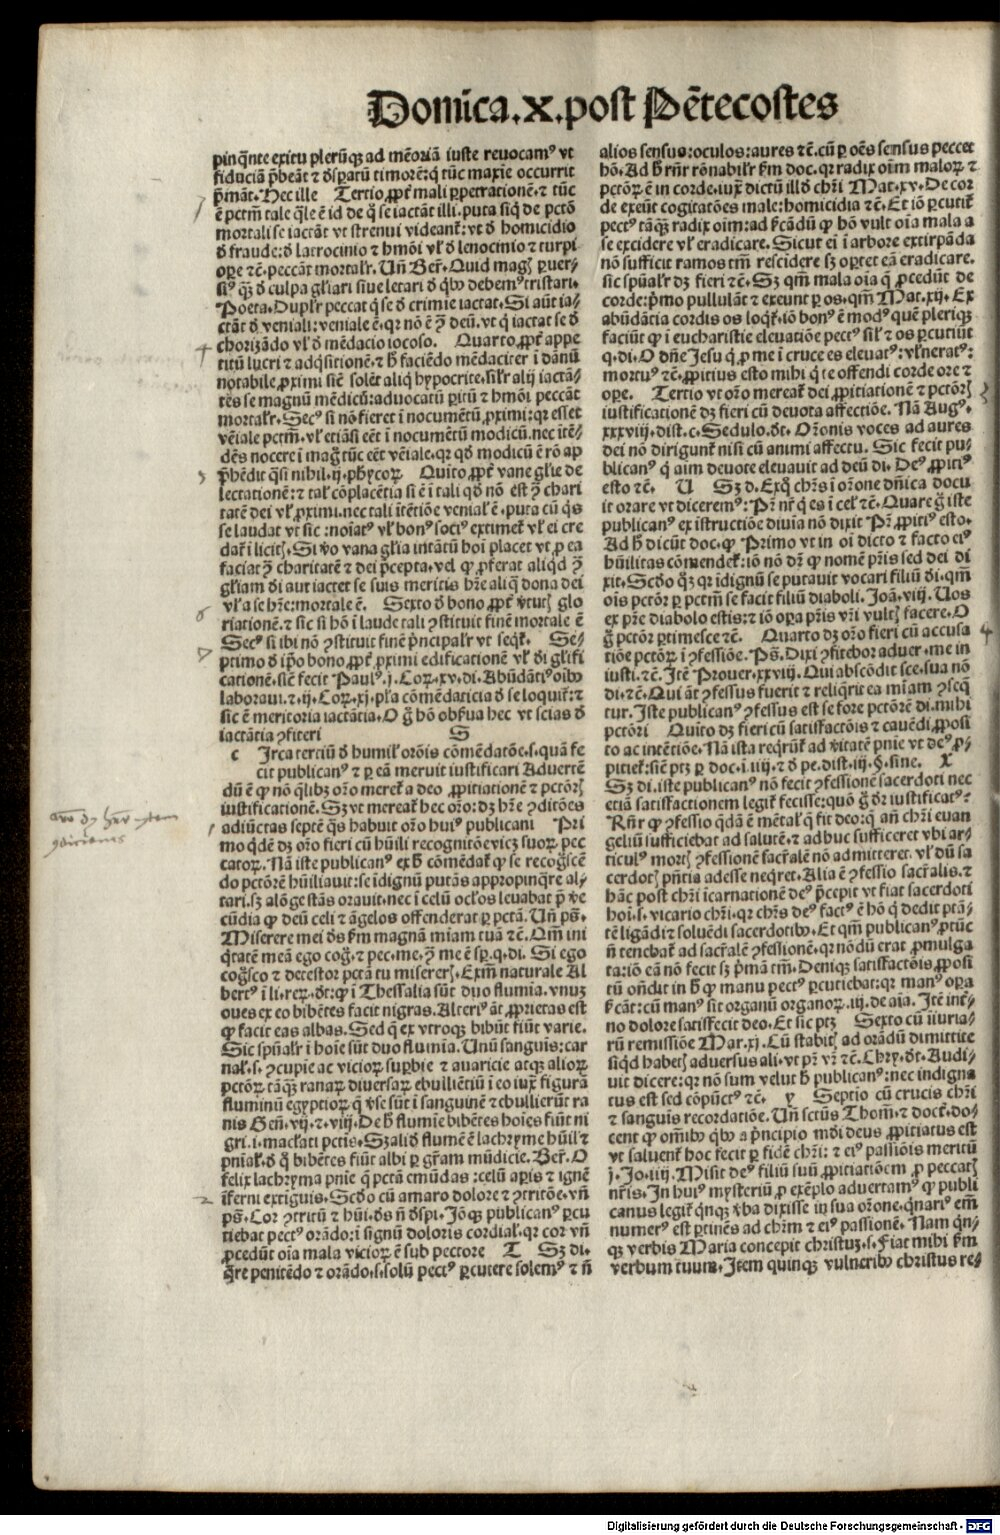 Domīca.x.post Pētecostes
pinq̄nte exitu plerūqȝ ad mēoriā iuste reuocamꝰ vt
fiduciā p̄beāt ⁊ dʼspatū timorē:q̄ tūc maxīe occurrit
p̄māt. Hec ille Tertio ꝓpt̄ mali ꝑpetrationē.⁊ tūc
ē pctm̄ tale q̄le ē id de q̄ se iactāt illi.puta siq̄ de pctō
mortali se iactāt vt strenui videant̄:vt dʼ homicidio
dʼ fraude:dʼ latrocinio ⁊ hmōi vl̓ dʼ lenocinio ⁊ turpi
oꝑe ⁊c̄.peccāt mortal̓r. Un̄ Ber̄. Quid magꝭ ꝑuer⸗
siꝰ q̄ȝ dʼ culpa gl̓iari siue letari dʼ qͥbꝰ debemꝰ tristari.
Poeta. Dupl̓r peccat q̄ se dʼ crimīe iactat. Si aūt ia⸗
ctāt dʼ veniali:veniale ē.qr nō ē ꝯͣ deū.vt q̄ iactat se dʼ
chorizādo vl̓ dʼ mēdacio iocoso. Quarto ꝓpt̄ appe
titū lucri ⁊ adqͥsitionē.⁊ h̄ faciēdo mēdaciter ī dānū
notabile ꝓximi sic̄ solēt aliq̄ hypocrite.sil̓r alij iactā⸗
tēs se magnū mēdicū:aduocatū ꝑitū ⁊ hmōi peccāt
mortal̓r. Secꝰ si nō fieret ī nocumētū ꝓximi:qr esset
vēiale pctm̄.vl̓ etiāsi eēt ī nocumētū modicū.nec itē⸗
dēs nocere ī mag̊ tūc eēt vēiale.qr qd̄ modicū ē rō ap
p̄hēdit q̄si nihil.ij.phycoꝝ. Quito ꝓpt̄ vane gl̓ie de
lectationē:⁊ tal̓ cōplacētia si ē ī tali qd̄ nō est ꝯͣ chari
tatē dei vl̓ ꝓximi.nec tali itētiōe venial̓ ē.puta cū q̄s
se laudat vt sic:noīatꝰ vl̓ bonꝰ sociꝰ extimet̄ vl̓ ei cre
dat̄ ī licitꝭ. Si vo vana gl̓ia intātū hoī placet vt ꝓ ea
faciat ꝯͣ charitatē ⁊ dei p̄cepta.vel ꝙ p̄ferat aliqd̄ ꝯͣ
gl̓iam dī aut iactet se suis meritis hr̄e aliq̄ dona dei
vl̓ a se hr̄e:mortale ē. Sexto dʼ bono ꝓpt̄ v̓tutꝭ glo
riationē.⁊ sic si hō ī laude tali ꝯstituit̄ finē mortale ē
Secꝰ si ibi nō ꝯstituit finē p̄ncipal̓r vt seqt̄. Se⸗
ptimo dʼ ip̄o bono ꝓpt̄ ꝓximi edificationē vl̓ dī gl̓ifi
cationē.sic̄ fecit Paulꝰ.j.Coꝝ.xv.di. Abūdātiꝰ oībꝰ
laboraui.⁊.ij.Coꝝ.xj.pl̓a cōmēdaticia dʼ se loquit̄:⁊
sic ē meritoria iactātia. O g̊ hō obẜua hec vt scias dʼ
iactātia ꝯfiteri S
c Irca tertiū dʼ humil̓ orōis cōmēdatōe.s.quā fe
cit publicanꝰ ⁊ ꝑ eā meruit iustificari Aduertē
dū ē ꝙ nō q̄libȝ orō meret̄ a deo ꝓpitiationē ⁊ pctōꝝ
iustificationē. Sȝ vt mereat̄ hec orō:dȝ hr̄e ꝯditōes
adiūctas septē q̄s habuit orō huiꝰ publicani Pri
mo qdē dȝ orō fieri cū hūili recognitōe vicꝫ suoꝝ pec
catoꝝ. Nā iste publicanꝰ ex h̄ cōmēdat̄ ꝙ se recog̊scē
do pctōrē hūiliauit:se īdignū putās appropinq̄re al⸗
tari.sȝ alōge stās orauit.nec ī celū ocl̓os leuabat p̄ ve
cūdia ꝙ deū celi ⁊ āgelos offenderat ꝑ pctā. Un̄ ps̄.
Miserere mei dʼs ẜm magnā miam tuā ⁊c̄. Qm̄ ini
q̄tatē meā ego cog̊.⁊ pec.me.ꝯͣ me ē sp.q.di. Si ego
cog̊sco ⁊ detestor pctā tu misererꝭ. Exm̄ naturale Al
bertꝰ ī li.reꝝ.dʼt:ꝙ ī Thessalia sūt duo flumīa.vnuȝ
oues ex eo bibētes facit nigras. Alteriꝰ āt ꝓprietas est
ꝙ facit eas albas. Sed q̄ ex vtroqȝ bibūt fiūt varie.
Sic spūal̓r ī hoīe sūt duo flumīa. Unū sanguis:car
nal̓.s.ꝯcupīe ac vicioꝝ suꝑbie ⁊ auaricie atqȝ alioꝝ
pctōꝝ tāq̄ȝ ranaꝝ diuersaꝝ ebulliētiū ī eo iux̄ figurā
fluminū egyptioꝝ q̄ v̓se sūt ī sanguinē ⁊ ebullierūt ra
nis Gen̄.vij.⁊.viij. De h̄ flumīe bibētes hoīes fiūt ni
gri.i.maclati pctīs. Sȝ aliꝰ flumē ē lachryme hūil̓ ⁊
pnīal̓.dʼ q̄ bibētes fiūt albi ꝑ gr̄am mūdicie. Ber̄. O
felix lachryma pnīe q̄ pctā emūdas:celū aꝑis ⁊ ignē
īferni extiguis. Scdo cū amaro dolore ⁊ ꝯtritōe.vn̄
ps̄. Cor ꝯtritū ⁊ hūi.dʼs n̄ dʼspi. Iōqȝ publicanꝰ ꝑcu
tiebat pectꝰ orādo:ī signū doloris cordial̓.qr cor vn̄
ꝓcedūt oīa mala vicioꝝ ē sub pectore T Sȝ di.
q̄re penitēdo ⁊ orādo.s.solū pectꝰ ꝑcutere solemꝰ ⁊ n̄
alios sensus:oculos:aures ⁊c̄.cū ꝑ oēs sensus peccet
hō. Ad h̄ rn̄r rōnabil̓r ẜm doc.qr radix oīm maloꝝ ⁊
pctōꝝ ē in corde.iux̄ dictū illḋ chr̄i Mat.xv. De cor
de exeūt cogitatōes male:homicidia ⁊c̄. Et iō ꝑcutit̄
pectꝰ tāq̄ȝ radix oīm:ad ẜcādū ꝙ hō vult oīa mala a
se excidere vl̓ eradicare. Sicut ei ī arbore extirpāda
nō sufficit ramos tm̄ rescidere sȝ oꝑtet eā eradicare.
sic spūal̓r dȝ fieri ⁊c̄. Sȝ qm̄ mala oīa q̄ ꝓcedūt de
corde:p̄mo pullulāt ⁊ exeunt ꝑ os.qm̄ Mat.xij. Ex
abūdātia cordis os loqt̄.iō bonꝰ ē modꝰ quē pleriqȝ
faciūt ꝙ ī eucharistie eleuatiōe pectꝰ sil̓ ⁊ os ꝑcutiūt
q.di. O dn̄e Iesu q̄ ꝓ me ī cruce es eleuatꝰ:vl̓neratꝰ:
mortuꝰ ⁊c̄.ꝓpitius esto mihi q̄ te offendi corde ore ⁊
oꝑe. Tertio vt orō mereat̄ dei ꝓpitiationē ⁊ pctōꝝ
iustificationē dȝ fieri cū deuota affectiōe. Nā Augꝰ.
xxxviij.dist.c. Sedulo.dʼt. Orōnis voces ad aures
dei nō dirigunt̄ nisi cū animi affectu. Sic fecit pu⸗
blicanꝰ q̄ aīm deuote eleuauit ad deū di. Deꝰ ꝓpitiꝰ
esto ⁊c̄. U Sȝ d. Exq̄ chr̄s ī orōne dn̄ica docu
it orare vt dicerem̄ꝰ: Pr̄ nr̄ q̄ es ī cel̓ ⁊c̄. Quare g̊ iste
publicanꝰ ex istructiōe diuīa nō dixit Pr̄ ꝓpitiꝰ esto.
Ad h̄ dicūt doc.ꝙ Primo vt in oī dicto ⁊ facto eiꝰ
hūilitas cōmendet̄:iō nō dr̄ ꝙ nomē pr̄is sed dei di
xit. Scdo q̄ȝ qr īdignū se putauit vocari filiū dī.qm̄
oīs pctōr ꝑ pctm̄ se facit filiū diaboli. Ioā.viij. Uos
ex pr̄e diabolo estis:⁊ iō oꝑa pr̄is vr̄i vultꝭ facere. O
g̊ pctōr ꝑtimesce ⁊c̄. Quarto dȝ orō fieri cū accusa
tiōe pctōꝝ ī ꝯfessiōe. Ps̄. Dixi ꝯfitebor aduer.me in
iusti.⁊c̄. Itē Prouer.xxviij. Qui abscōdit sce.sua nō
di.⁊c̄. Qui āt ꝯfessus fuerit ⁊ reliqrit ea mīam ꝯseq̄
tur. Iste publicanꝰ ꝯfessus est se fore pctōrē di.mihi
pctōri Quīto dȝ fieri cū satisfactōis ⁊ cauēdi ꝓposi
to ac intētiōe. Nā ista reqrūt̄ ad v̓itatē pnīe vt deꝰ ꝓ⸗
pitiet̄:sic̄ ptȝ ꝑ doc.ī.iiij.⁊ dʼ pe.dist.iij.§.sine. X
Sȝ di.iste publicanꝰ nō fecit ꝯfessionē sacerdoti nec
etiā satisfactionem legit̄ fecisse:quō g̊ dʼr iustificatꝰ?
Rn̄r ꝙ ꝯfessio q̄dā ē mētal̓ q̄ fit deo:q̄ an̄ chr̄i euan
geliū sufficiebat ad salutē.⁊ adhuc sufficeret vbi ar⸗
ticulꝰ mortꝭ ꝯfessionē sacr̄alē nō admitteret.vl̓ dū sa
cerdotꝭ pn̄tia adesse neqret. Alia ē ꝯfessio sacr̄alis.⁊
hāc post chr̄i īcarnationē deꝰ p̄cepit vt fiat sacerdoti
hoī.s.vicario chr̄i.qr chr̄s deꝰ factꝰ ē hō q̄ dedit ptā⸗
tē ligādī ⁊ soluēdi sacerdotibꝰ. Et qm̄ publicanꝰ ꝓtūc
n̄ tenebat̄ ad sacr̄alē ꝯfessionē.qr nōdū erat ꝓmulga
ta:iō eā nō fecit sȝ p̄mā tm̄. Deniqȝ satisfactōis ꝓposi
tū ondit in h̄ ꝙ manu pectꝰ ꝑcutiebat:qr manꝰ oꝑa
ẜcāt:cū manꝰ sit organū organoꝝ.iij.de aīa. Itē int̄⸗
no dolore satisfecit deo. Et sic ptȝ Sexto cū iiuria⸗
rū remissiōe Mar.xj. Cū stabitꝭ ad orādū dimittite
siqd habetꝭ aduersus ali.vt pr̄ vr̄ ⁊c̄. Chry.dʼt. Audi⸗
uit dicere:qr nō sum velut h̄ publicanꝰ:nec indigna
tus est sed cōpūctꝰ ⁊c̄. y Septio cū crucis chr̄i
⁊ sanguis recordatiōe. Un̄ sctūs Thom̄.⁊ doct̄.do⸗
cent ꝙ oībꝰ qͥbꝰ a p̄ncipio mūdi deus ꝓpitiatus est
vt saluent̄ hoc fecit ꝑ fidē chr̄i:⁊ eiꝰ passiōis meritū
j.Jo.iiij. Misit deꝰ filiū suū ꝓpitiatiōem ꝓ peccatꝭ
nr̄is. In huiꝰ mysteriū ꝓ exēplo aduertamꝰ ꝙ publi
canus legit̄ qnqȝ v̓ba dixisse in sua orōne.qnariꝰ em̄
numerꝰ est ꝑtinēs ad chr̄m ⁊ eiꝰ passionē. Nam qn⸗
qȝ verbis Maria concepit christuȝ.s.Fiat mihi ẜm
verbum tuum. Item quinqȝ vulneribꝰ christus re⸗
Digitalisierung gefördert durch die Deutsche Forschungsgemeinschaft - DFG